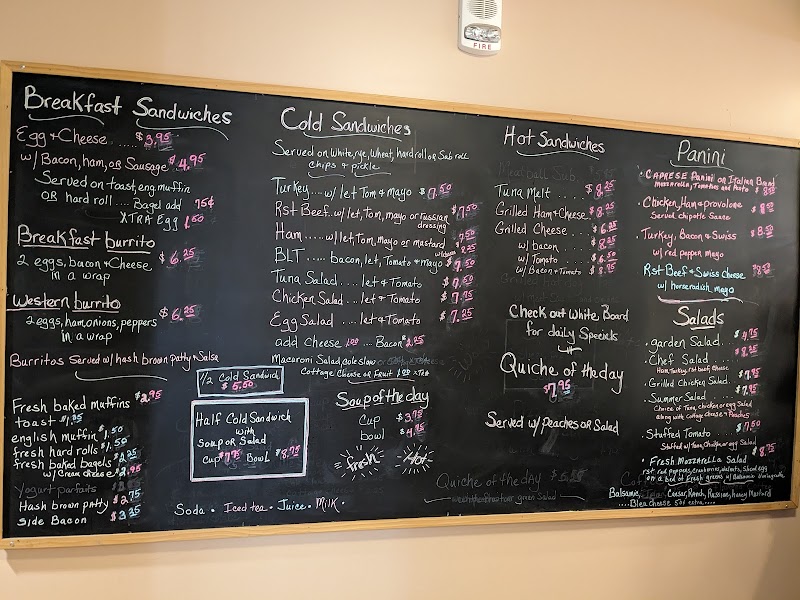 FIRE
Breakfast Sandwiches
Egg & Cheese ..... $3.95
w/ Bacon, ham, or Sausage $4.95
Served on toast, eng. muffin
OR hard roll .... Bagel add 75¢
XTRA Egg 1.50
Breakfast burrito
2 eggs, bacon & Cheese $6.25
in a wrap
Western burrito
2 eggs, ham, onions, peppers $6.25
in a wrap
Burritos Served w/ hash brown patty & Salsa
Fresh baked muffins $2.95
toast $1.25
english muffin $1.50
fresh hard rolls $1.50
fresh baked bagels $2.25
w/ Cream cheese $2.95
Yogurt parfaits
Hash brown patty $2.75
Side Bacon $3.25
Cold Sandwiches
Served on White, rye, wheat, hard roll or Sub roll
chips & pickle
Turkey.... w/ let, Tom & Mayo $7.50
Rst Beef.. w/ let, Tom, mayo or russian $7.50
dressing
Ham..... w/ let, Tom, mayo or mustard $7.50
w/ cheese 8.25
BLT ..... bacon, let, Tomato & Mayo $7.50
Tuna Salad .... let & Tomato $7.50
Chicken Salad.... let & Tomato $7.75
Egg Salad .... let & Tomato $7.25
add Cheese 1.00 .... Bacon
Macaroni Salad, coleslaw
Cottage Cheese or Fruit 1.00 xtra
1/2 Cold Sandwich
$5.50
Half Cold Sandwich
with
Soup or Salad
Cup $7.75 Bowl $8.75
Soup of the day
Cup $3.75
bowl $4.75
fresh Hot
Soda • Iced tea • Juice • Milk •
Hot Sandwiches
Meatball Sub
Tuna Melt ...... $8.25
Grilled Ham & Cheese. $8.25
Grilled Cheese .... $6.25
w/ bacon $8.25
w/ Tomato $6.50
w/ Bacon & Tomato $8.75
Check out White Board
for daily Specials
Quiche of the day
$7.95
Served w/ Peaches or Salad
Quiche of the day
Panini
• CAPRESE Panini on Italian Bread
Mozzarella, Tomatoes and Pesto $8.50
• Chicken, Ham & provolone $8.50
Served chipotle Sauce
• Turkey, Bacon & Swiss $8.50
w/ red pepper mayo
Rst Beef & Swiss Cheese $8.50
w/ horseradish mayo
Salads
• garden Salad.... $4.75
• Chef Salad .... $8.25
Ham, Turkey, rst beef, Cheese
• Grilled Chicken Salad. $7.95
• Summer Salad .... $7.95
Choice of Tuna, chicken or egg Salad
along with Cottage cheese & Peaches
• Stuffed Tomato $7.50
Stuffed w/ Tuna, Chicken, or egg Salad
• Fresh Mozzarella Salad $8.75
rst red peppers, Craisins, walnuts, Sliced egg
on a bed of Fresh greens w/ Balsamic Vinaigrette
Balsamic, Italian, Caesar, Ranch, Russian, Honey Mustard
.... Bleu Cheese 50¢ extra....